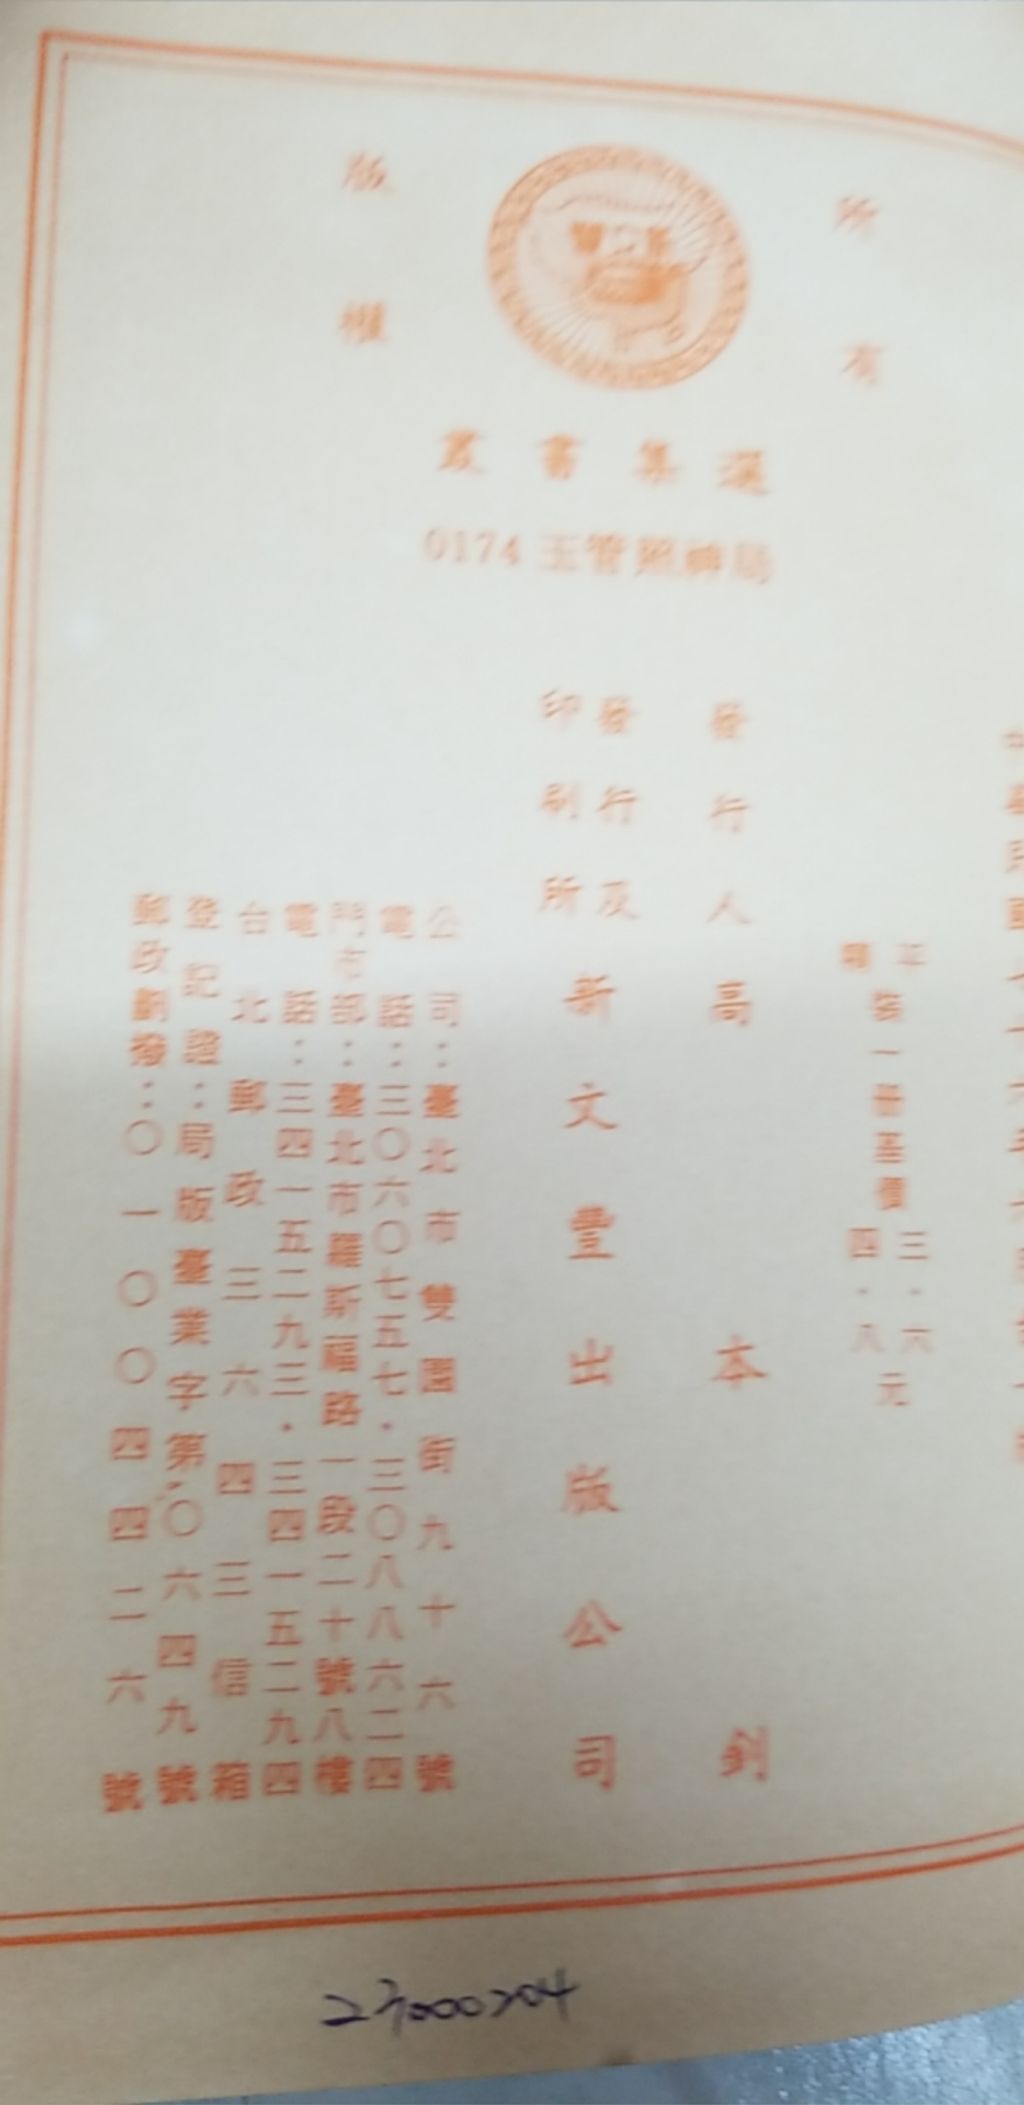 所有
版權
叢書集選
0174 玉管照神局
平
精
裝一冊基價
三·六
四·八
元
發行人高本釗
發行及
印刷所
新文豐出版公司
公司：臺北市雙園街九十六號
電話：三〇六〇七五七·三〇八八六二四
門市部：臺北市羅斯福路一段二十號八樓
電話：三四一五二九三·三四一五二九四
台北郵政三六四三信箱
登記證：局版臺業字第〇六四九號
郵政劃撥：〇一〇〇四四二六號